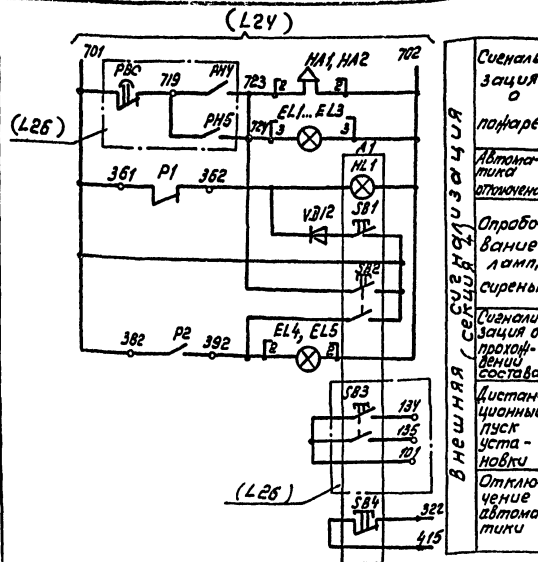 (L24)
701
702
РВС
719
РН4
723
HA1, HA2
2
2
EL1...EL3
РН5
724
3
3
(L26)
A1
HL1
361
P1
362
VD12
SB1
SB2
382
P2
392
EL4, EL5
2
2
SB3
134
135
101
(L26)
SB4
322
415
внешняя сигнализация
(секция 4)
Сигнали
зация
о
пожаре
Автома-
тика
отключена
Опробо-
вание
ламп,
сирены
Сигнали
зация о
прохож-
дении
состава
Дистан-
ционный
пуск
уста-
новки
Отклю-
чение
автома
тики